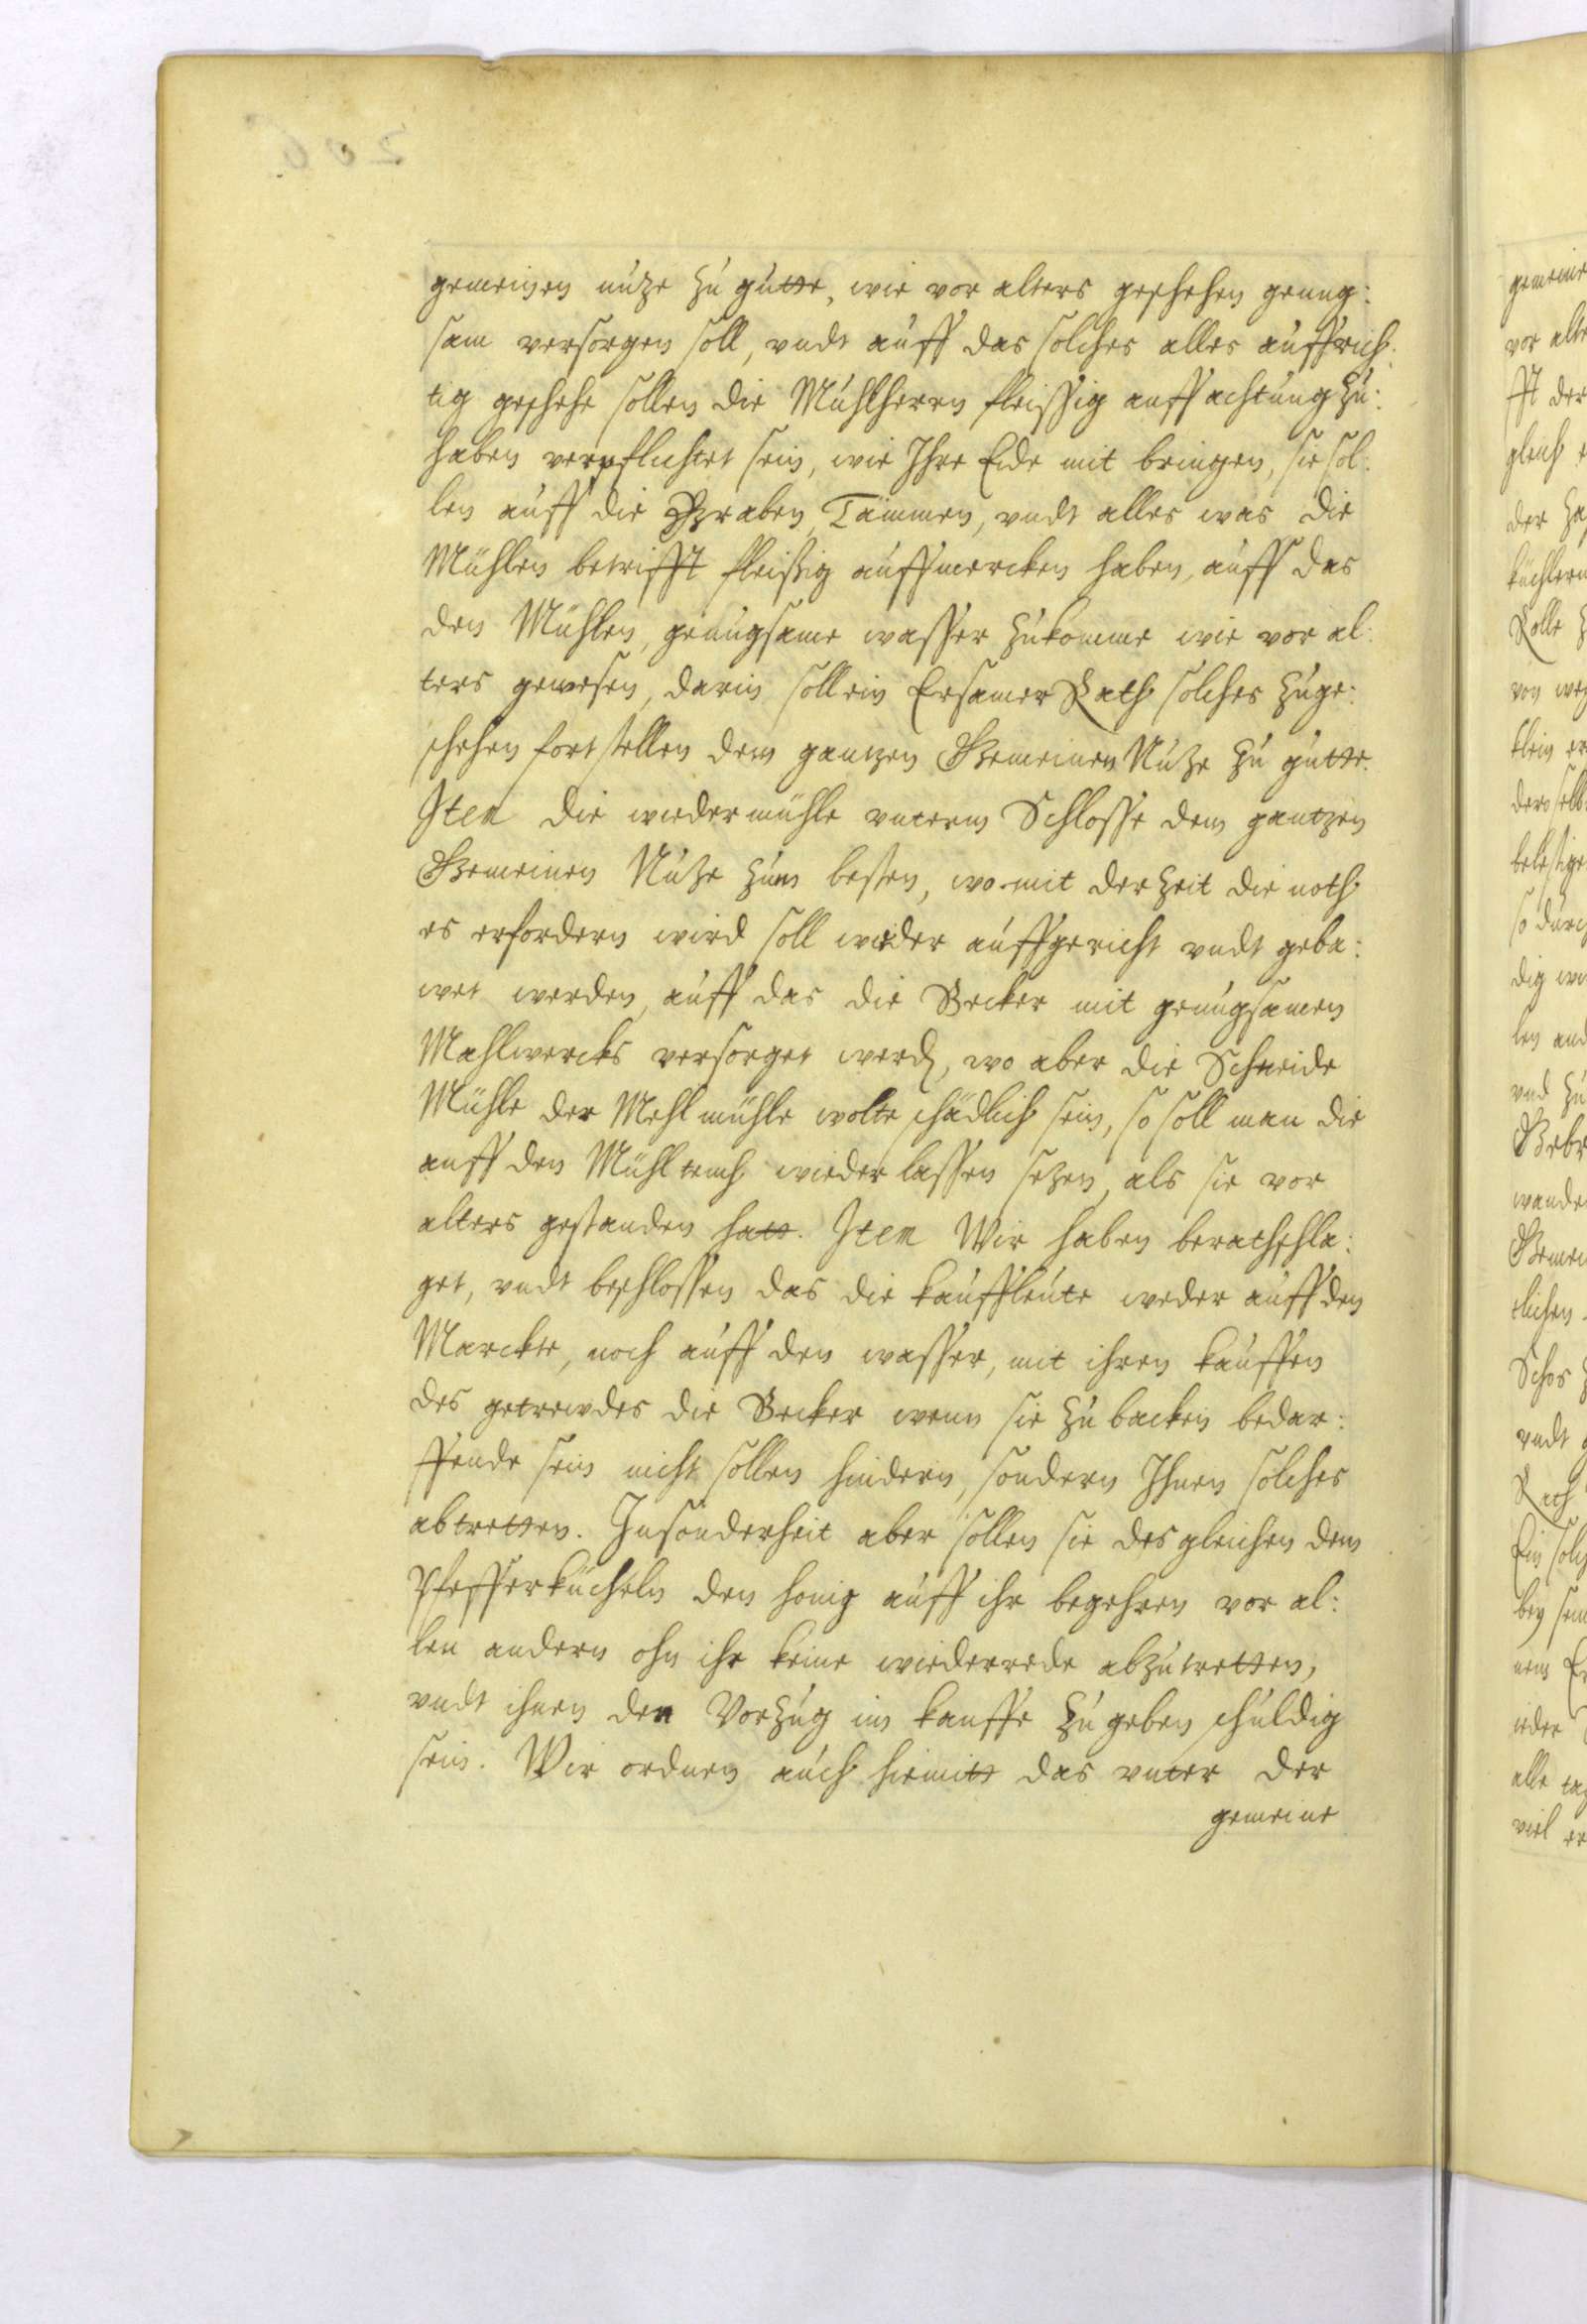 gemeinen nutze zu gutte, wie vor alters geschehen genug:
sam versorgen soll, vndt auff das solches alles auffrich:
tig geschehe sollen die Mühlherrn fleissig auffachtung zu:
haben verpflichtet sein, wie Ihre Eide mit bringen, sie sol:
len auff die Graben, Tämmen, vndt alles was die
Mühlen betrifft fleißig auffmercken haben, auff das
den Mühlen, genugsame wasser zukomme wie vor al:
ters gewesen, darin soll ein Ersamer Rath solches zuge:
schehen fortstellen dem gantzen Gemeinen Nutze zu gutte.
Item die wiedermühle vnterm Schlosse dem gantzen
Gemeinen Nutze zum besten, wo mit der zeit die noth
es erfordern wird soll wieder auffgericht vndt geba:
wet werden, auff das die Becker mit genugsamen
Mahlwercks versorget werden, wo aber die Schneide
Mühle der Mehlmühle wolte schädlich sein, so soll man die
auff den Mühlteich wieder lassen setzen, als sie vor
alters gestanden hatt. Item Wir haben berathschla:
get, vndt beschlossen das die kauffleute weder auff den
Marckte, noch auff den wasser, mit ihren kauffen
des getreides die Becker wenn sie zu backen bedar:
ffende sein nicht sollen hindern, sondern Ihnen solches
abtretten. Insonderheit aber sollen sie desgleichen dem
Pfefferkücheln den honig auff ihr begehren vor al:
len andern ohn ihr keine wiederrede abzutretten,
vndt ihnen den Vorzug im kauffe zu geben schuldig
sein. Wir ordnen auch hiemitt das vnter der
gemeine